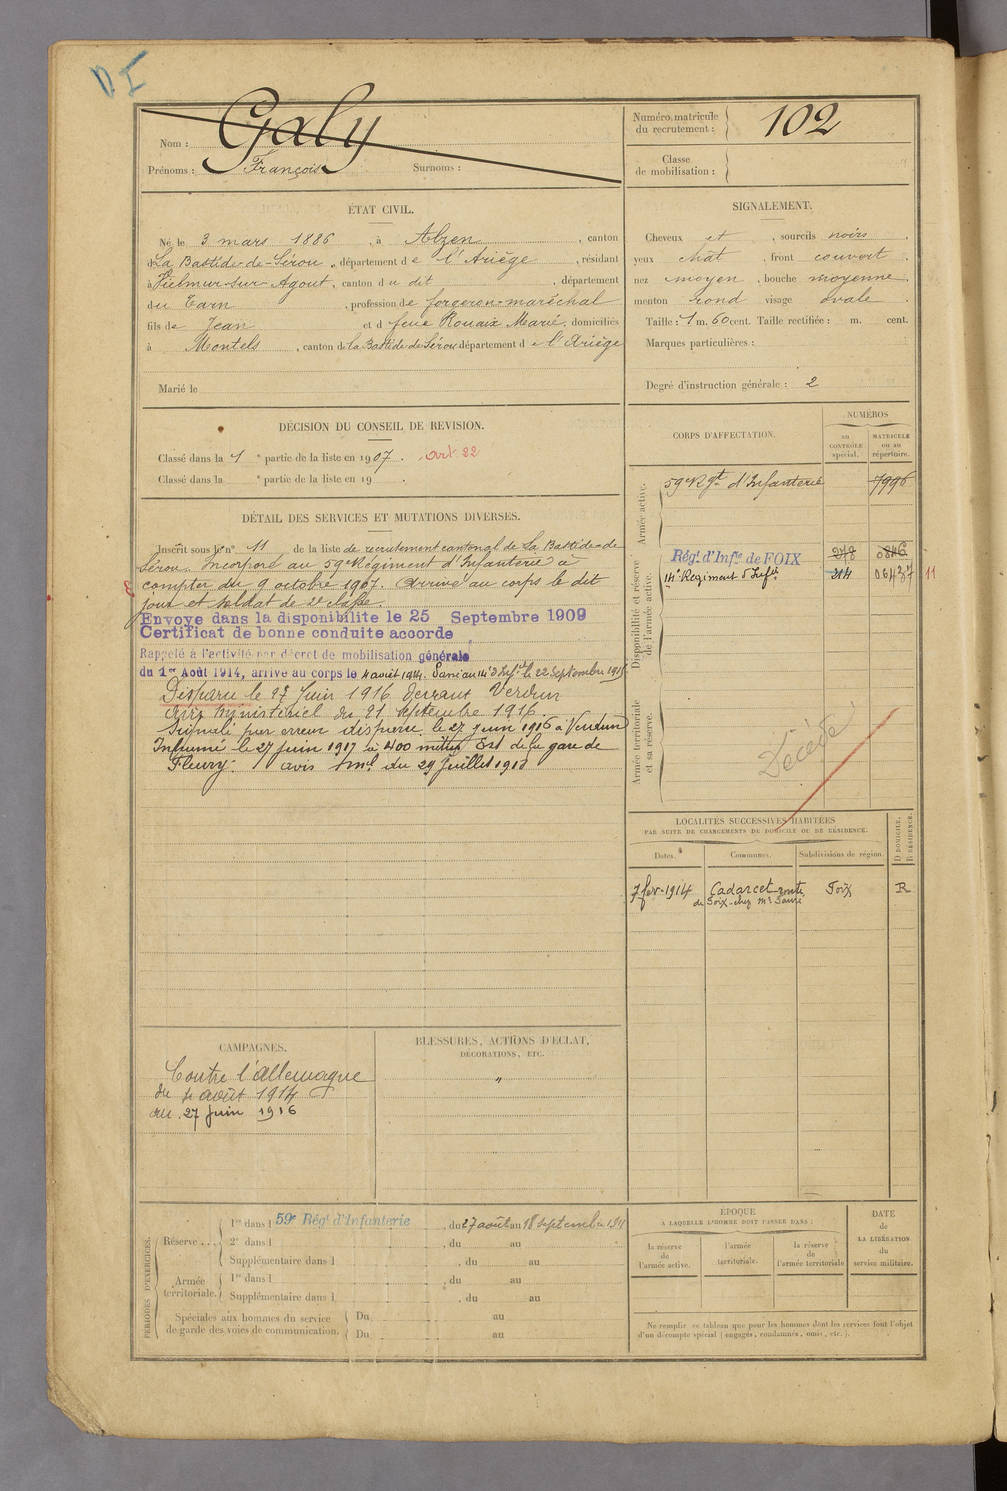 DI
Nom : Galy
Prénoms : François Surnoms :
Numéro matricule du recrutement : 102
Classe de mobilisation :
ÉTAT CIVIL.
Né le 3 mars 1886, à Alzen, canton
d La Bastide-de-Sérou, département de l'Ariège, résidant
à Vielmur-sur-Agout, canton du dit, département
du Tarn, profession de forgeron-maréchal
fils de Jean et d feue Rouaix Marie, domiciliés
à Montels, canton de la Bastide de Sérou département d e l'Ariège
Marié le
SIGNALEMENT.
Cheveux et, sourcils noirs.
yeux chât, front couvert.
nez moyen, bouche moyenne
menton rond visage ovale.
Taille : 1 m. 60 cent. Taille rectifiée : m. cent.
Marques particulières :
Degré d'instruction générale : 2
DÉCISION DU CONSEIL DE REVISION.
Classé dans la 1e partie de la liste en 1907. Art 22
Classé dans la e partie de la liste en 19
DÉTAIL DES SERVICES ET MUTATIONS DIVERSES.
Inscrit sous le n° 11 de la liste de recrutement cantonal de La Bastide-de
Sérou. Incorporé au 59e Régiment d'Infanterie à
compter du 9 octobre 1907. Arrivé au corps le dit
jour et soldat de 2e classe.
Envoye dans la disponibilite le 25 Septembre 1909
Certificat de bonne conduite accorde
Rappelé à l'activité par décret de mobilisation générale
du 1er Août 1914, arrive au corps le 4 août 1914. Passé au 14e d'Infie le 22 Septembre 1915
Disparu le 27 Juin 1916 devant Verdun
avis ministériel du 21 septembre 1916.
Signalé par erreur disparu le 27 juin 1916 à Verdun
Inhumé le 27 juin 1917 à 400 mètres Est de la gare de
Fleury. avis Mel du 29 Juillet 1918
CORPS D'AFFECTATION.
NUMÉROS
au CONTRÔLE spécial.
MATRICULE ou au répertoire.
Armée active.
59e Rgt d'Infanterie 7996
Disponibilité et réserve de l'armée active.
Régt d'Infie de FOIX 278 0846
14e Régiment d'Infie 214 06437 11
Armée territoriale et sa réserve.
Décédé
LOCALITÉS SUCCESSIVES HABITÉES
PAR SUITE DE CHANGEMENTS DE DOMICILE OU DE RÉSIDENCE.
Dates. Communes. Subdivisions de région. D DOMICILE. R RÉSIDENCE.
7 fév-1914 Cadarcet-route Foix R
de Foix-chez Mr
CAMPAGNES.
Contre l'allemagne
du 4 août 1914
au 27 Juin 1916
BLESSURES, ACTIONS D'ÉCLAT,
DÉCORATIONS, ETC.
"
PÉRIODES D'EXERCICES.
Réserve...
1re dans l 59e Régt d'Infanterie, du 27 août au 18 septembre 1911
2e dans l, du au
Supplémentaire dans l, du au
Armée territoriale.
1re dans l, du au
Supplémentaire dans l, du au
Spéciales aux hommes du service
de garde des voies de communication.
Du au
Du au
ÉPOQUE
A LAQUELLE L'HOMME DOIT PASSER DANS :
la réserve de l'armée active.
l'armée territoriale.
la réserve de l'armée territoriale
DATE de LA LIBÉRATION du service militaire.
Ne remplir ce tableau que pour les hommes dont les services font l'objet
d'un décompte spécial (engagés, condamnés, omis, etc.).